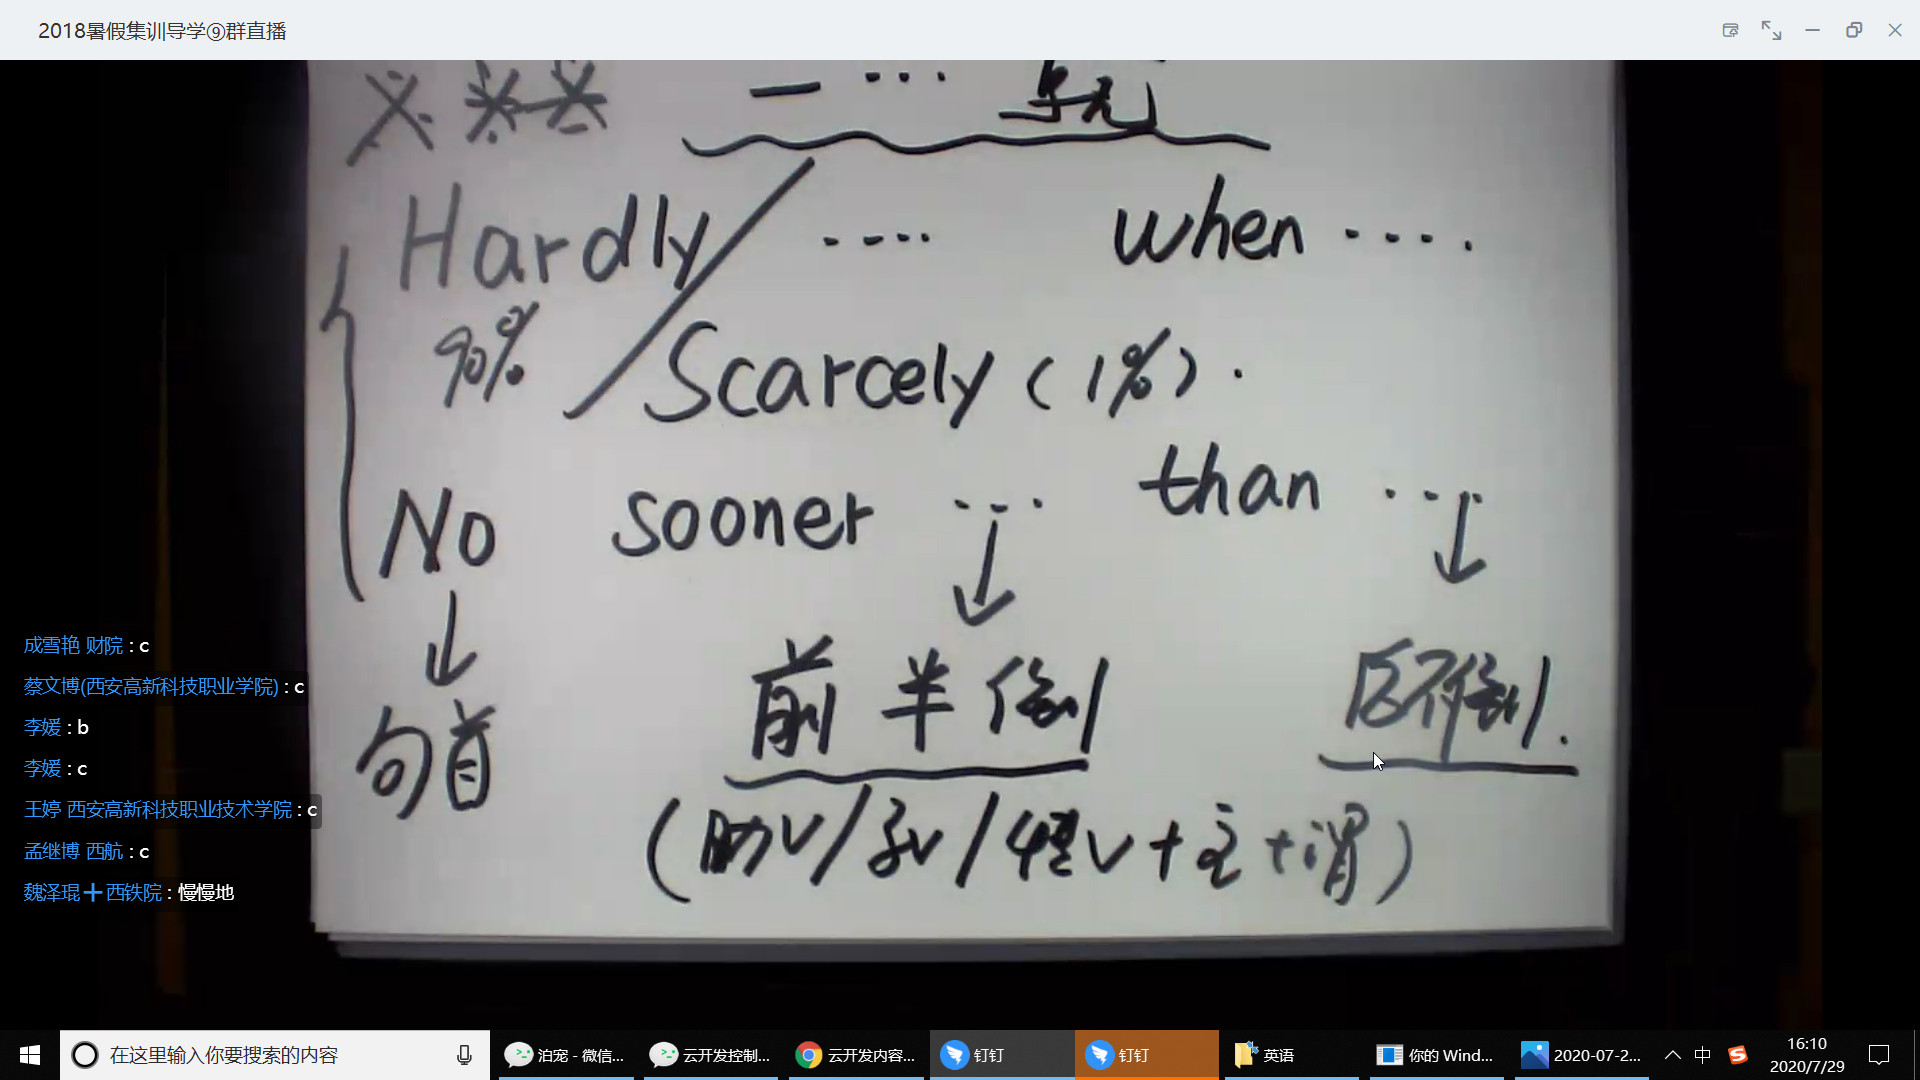 2018暑假集训导学⑨群直播
一 …
Hardly/ .... when ....
90% Scarcely (1%).
No sooner ... than ...
句首 前半倒 后不倒.
(助V/系V/情V+主+谓)
成雪艳 财院 : c
蔡文博(西安高新科技职业学院) : c
李媛 : b
李媛 : c
王婷 西安高新科技职业技术学院 : c
孟继博 西航 : c
魏泽琨十西铁院 : 慢慢地
在这里输入你要搜索的内容
泊宠 - 微信...
云开发控制...
云开发内容...
钉钉
钉钉
英语
你的 Wind...
2020-07-2...
中
16:10
2020/7/29